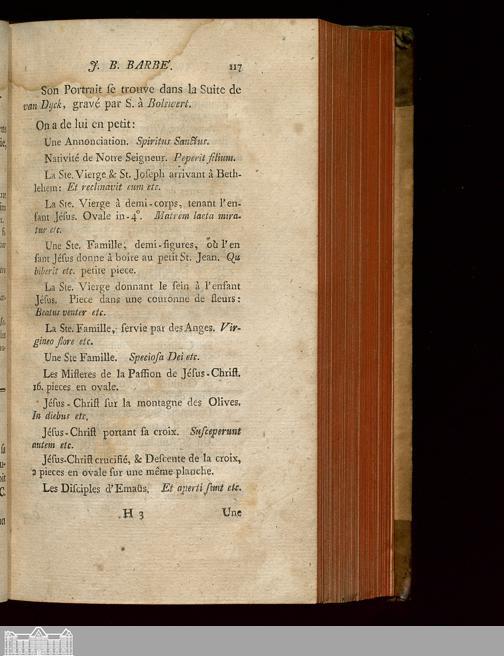 J. B. BARBÉ. 117
Son Portrait ſe trouve dans la Suite de
van Dyck, gravé par S. à Bolswert.
On a de lui en petit:
Une Annonciation. Spiritus Sanctus.
Nativité de Notre Seigneur. Peperit filium.
La Ste. Vierge & St. Joſeph arrivant à Beth-
lehem: Et reclinavit eum etc.
La Ste. Vierge à demi-corps, tenant l'en-
fant Jéſus. Ovale in-4°. Matrem laeta mira-
tur etc.
Une Ste. Famille, demi-figures, où l'en
fant Jéſus donne à boire au petit St. Jean. Qu
biberit etc. petite piece.
La Ste. Vierge donnant le ſein à l'enfant
Jéſus. Piece dans une couronne de fleurs:
Beatus venter etc.
La Ste. Famille, ſervie par des Anges. Vir-
gineo flore etc.
Une Ste Famille. Specioſa Dei etc.
Les Miſteres de la Paſſion de Jéſus-Chriſt.
16. pieces en ovale.
Jéſus-Chriſt ſur la montagne des Olives.
In diebus etc.
Jéſus-Chriſt portant ſa croix. Suſceperunt
autem etc.
Jéſus-Chriſt crucifié, & Deſcente de la croix,
2 pieces en ovale ſur une même planche.
Les Diſciples d'Emaüs. Et aperti ſunt etc.
H 3 Une